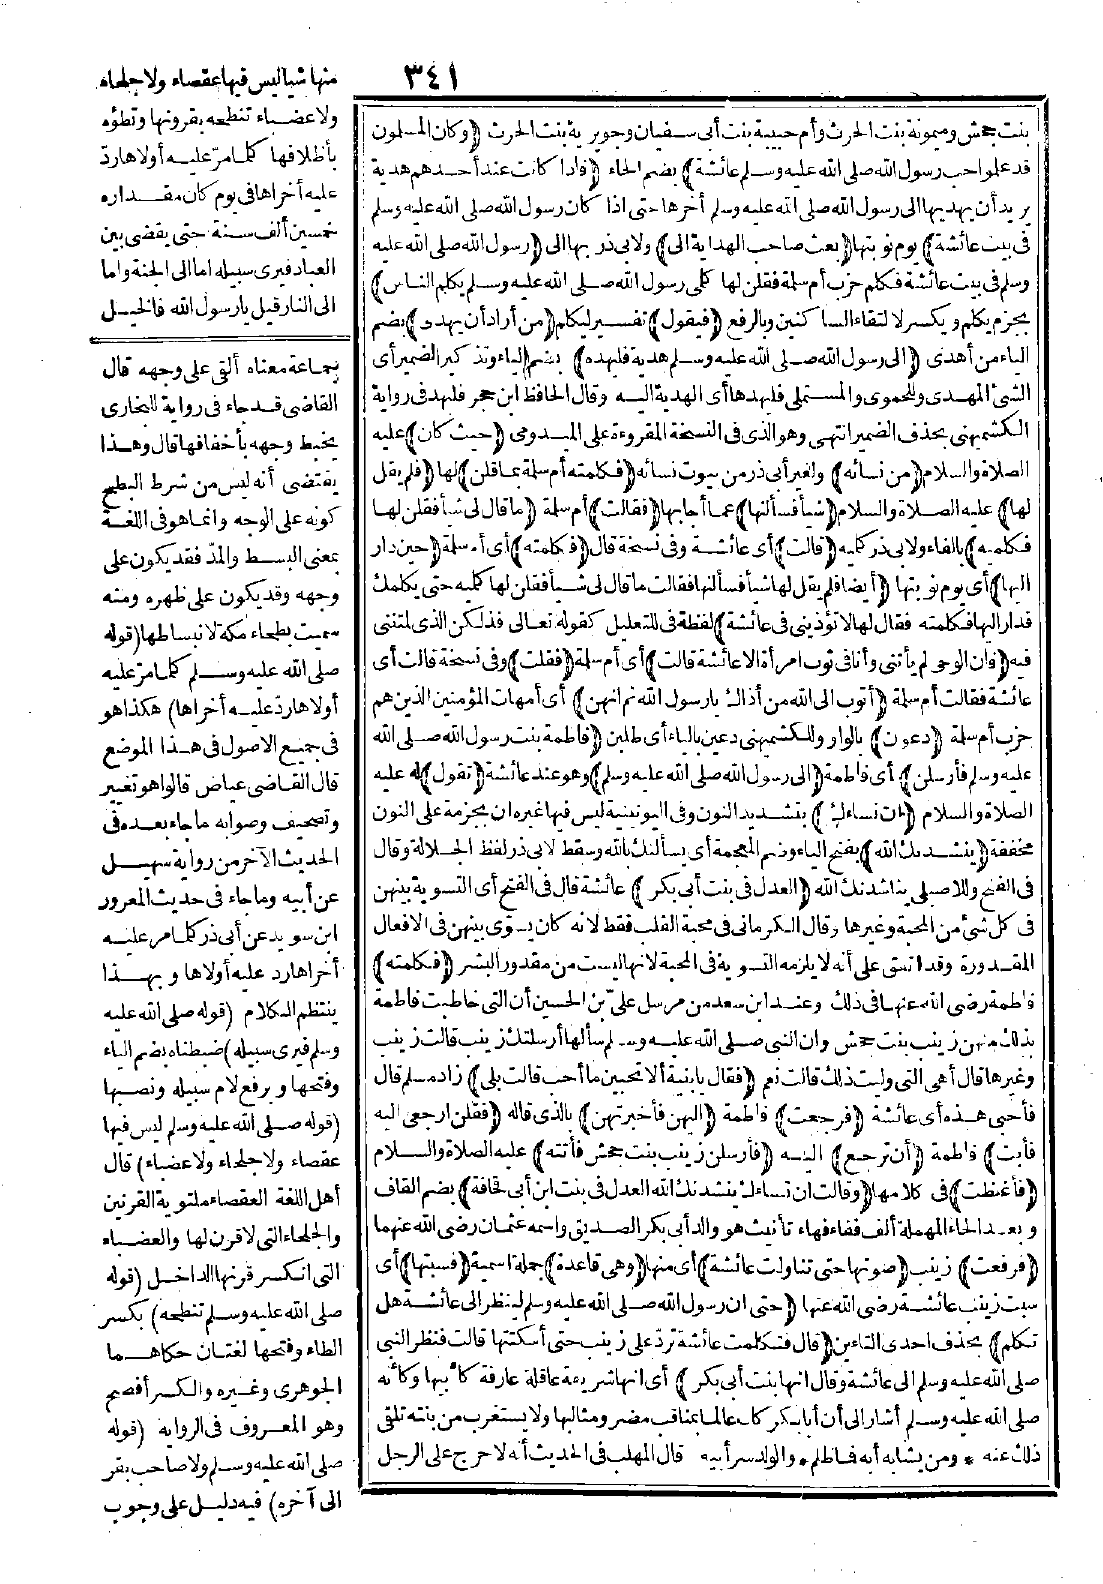 ٣٤١
بنت جحش وميمونة بنت الحرث وأم حبيبة بنت أبى سفيان وجويرية بنت الحرث (وكان المسلمون
قد علموا حب رسول الله صلى الله عليه وسلم عائشة) بضم الحاء (فاذا كانت عند أحدهم هدية
يريد أن يهديها الى رسول الله صلى الله عليه وسلم أخرها حتى اذا كان رسول الله صلى الله عليه وسلم
فى بيت عائشة) يوم نوبتها (بعث صاحب الهداية الى) ولابى ذر بها الى (رسول الله صلى الله عليه
وسلم فى بيت عائشة فكلم حزب أم سلمة فقلن لها كلمى رسول الله صلى الله عليه وسلم يكلم الناس)
بجزم يكلم ويكسر لالتقاء الساكنين وبالرفع (فيقول) تفسير ليكلم (من أراد أن يهدى) بضم
الياء من أهدى (الى رسول الله صلى الله عليه وسلم هدية فليهده) بضم الياء وتذكير الضمير أى
الشئ المهدى وللحموى والمستملى فليهدها أى الهدية اليه وقال الحافظ ابن حجر فليهد فى رواية
الكشميهنى بحذف الضمير انتهى وهو الذى فى النسخة المقروءة على الميدومى (حيث كان) عليه
الصلاة والسلام (من نسائه) ولغير أبى ذر من بيوت نسائه (فكلمته أم سلمة بما قلن) لها (فلم يقل
لها) عليه الصلاة والسلام (شيأ فسألنها) عما أجابها (فقالت) أم سلمة (ما قال لى شيأ فقلن لها
فكلميه) بالفاء ولابى ذر كلميه (قالت) أى عائشة وفى نسخة قال (فكلمته) أى أم سلمة (حين دار
اليها) أى يوم نوبتها (أيضا فلم يقل لها شيأ فسألنها فقالت ما قال لى شيأ فقلن لها كلميه حتى يكلمك
فدار اليها فكلمته فقال لها لا تؤذينى فى عائشة) لفظة فى للتعليل كقوله تعالى فذلكن الذى لمتننى
فيه (فان الوحى لم يأتنى وأنا فى ثوب امرأة الا عائشة قالت) أى أم سلمة (فقلت) وفى نسخة قالت أى
عائشة فقالت أم سلمة (أتوب الى الله من أذاك يارسول الله ثم انهن) أى أمهات المؤمنين الذين هم
حزب أم سلمة (دعون) بالواو وللكشميهنى دعين بالياء أى طلبن (فاطمة بنت رسول الله صلى الله
عليه وسلم فأرسلن) أى فاطمة (الى رسول الله صلى الله عليه وسلم) وهو عند عائشة (تقول) له عليه
الصلاة والسلام (ان نساءك) بتشديد النون وفى اليونينية ليس فيها غيره ان بجزمة على النون
مخففة (ينشدنك الله) بفتح الياء وضم المعجمة أى يسألنك بالله وسقط لابى ذر لفظ الجلالة وقال
فى الفتح وللاصيلى يناشدنك الله (العدل فى بنت أبى بكر) عائشة قال فى الفتح أى التسوية بينهن
فى كل شئ من المحبة وغيرها وقال الكرمانى فى محبة القلب فقط لانه كان يسوى بينهن فى الافعال
المقدورة وقد اتفق على أنه لا يلزمه التسوية فى المحبة لانها ليست من مقدور البشر (فكلمته)
فاطمة رضى الله عنها فى ذلك وعند ابن سعد من مرسل على بن الحسين أن التى خاطبت فاطمة
بذلك منهن زينب بنت جحش وان النبى صلى الله عليه وسلم سألها أرسلتك زينب قالت زينب
وغيرها قال أهى التى وليت ذلك قالت نعم (فقال يا بنية ألا تحبين ما أحب قالت بلى) زاد مسلم قال
فأحبى هذه أى عائشة (فرجعت) فاطمة (اليهن فأخبرتهن) بالذى قاله (فقلن ارجعى اليه
فأبت) فاطمة (أن ترجع) اليه (فأرسلن زينب بنت جحش فأتته) عليه الصلاة والسلام
(فأغلظت) فى كلامها (وقالت ان نساءك ينشدنك الله العدل فى بنت ابن أبى قحافة) بضم القاف
وبعد الحاء المهملة ألف ففاء فهاء تأنيث هو والد أبى بكر الصديق واسمه عثمان رضى الله عنهما
(فرفعت) زينب (صوتها حتى تناولت عائشة) أى منها (وهى قاعدة) جملة اسمية (فسبتها) أى
سبت زينب عائشة رضى الله عنها (حتى ان رسول الله صلى الله عليه وسلم لينظر الى عائشة هل
تكلم) بحذف احدى التاءين (قال فتكلمت عائشة ترد على زينب حتى أسكتتها قالت فنظر النبى
صلى الله عليه وسلم الى عائشة وقال انها بنت أبى بكر) أى انها شريفة عاقلة عارفة كأبيها وكأنه
صلى الله عليه وسلم أشار الى أن أبا بكر كان عالما بمناقب مضر ومثالبها ولا يستغرب من بنته تلقى
ذلك عنه * ومن يشابه أبه فما ظلم * والولد سر أبيه قال المهلب فى الحديث أنه لا حرج على الرجل
منها شيأ ليس فيها عقصاء ولا جلحاء
ولا عضباء تنطحه بقرونها وتطؤه
بأظلافها كلما مر عليه أولاها رد
عليه أخراها فى يوم كان مقداره
خمسين ألف سنة حتى يقضى بين
العباد فيرى سبيله اما الى الجنة واما
الى النار قيل يارسول الله فالخيل
جماعة معناه ألقى على وجهه قال
القاضى قد جاء فى رواية للبخارى
يخبط وجهه بأخفافها قال وهذا
يقتضى أنه ليس من شرط البطح
كونه على الوجه وانما هو فى اللغة
بمعنى البسط والمد فقد يكون على
وجهه وقد يكون على ظهره ومنه
سميت بطحاء مكة لانبساطها (قوله
صلى الله عليه وسلم كلما مر عليه
أولاها رد عليه أخراها) هكذا هو
فى جميع الاصول فى هذا الموضع
قال القاضى عياض قالوا هو تغيير
وتصحيف وصوابه ما جاء بعده فى
الحديث الآخر من رواية سهيل
عن أبيه وما جاء فى حديث المعرور
ابن سويد عن أبى ذر كلما مر عليه
أخراها رد عليه أولاها وبهذا
ينتظم الكلام (قوله صلى الله عليه
وسلم فيرى سبيله) ضبطناه بضم الياء
وفتحها وبرفع لام سبيله ونصبها
(قوله صلى الله عليه وسلم ليس فيها
عقصاء ولا جلحاء ولا عضباء) قال
أهل اللغة العقصاء ملتوية القرنين
والجلحاء التى لا قرن لها والعضباء
التى انكسر قرنها الداخل (قوله
صلى الله عليه وسلم تنطحه) بكسر
الطاء وفتحها لغتان حكاهما
الجوهرى وغيره والكسر أفصح
وهو المعروف فى الرواية (قوله
صلى الله عليه وسلم ولا صاحب بقر
الى آخره) فيه دليل على وجوب